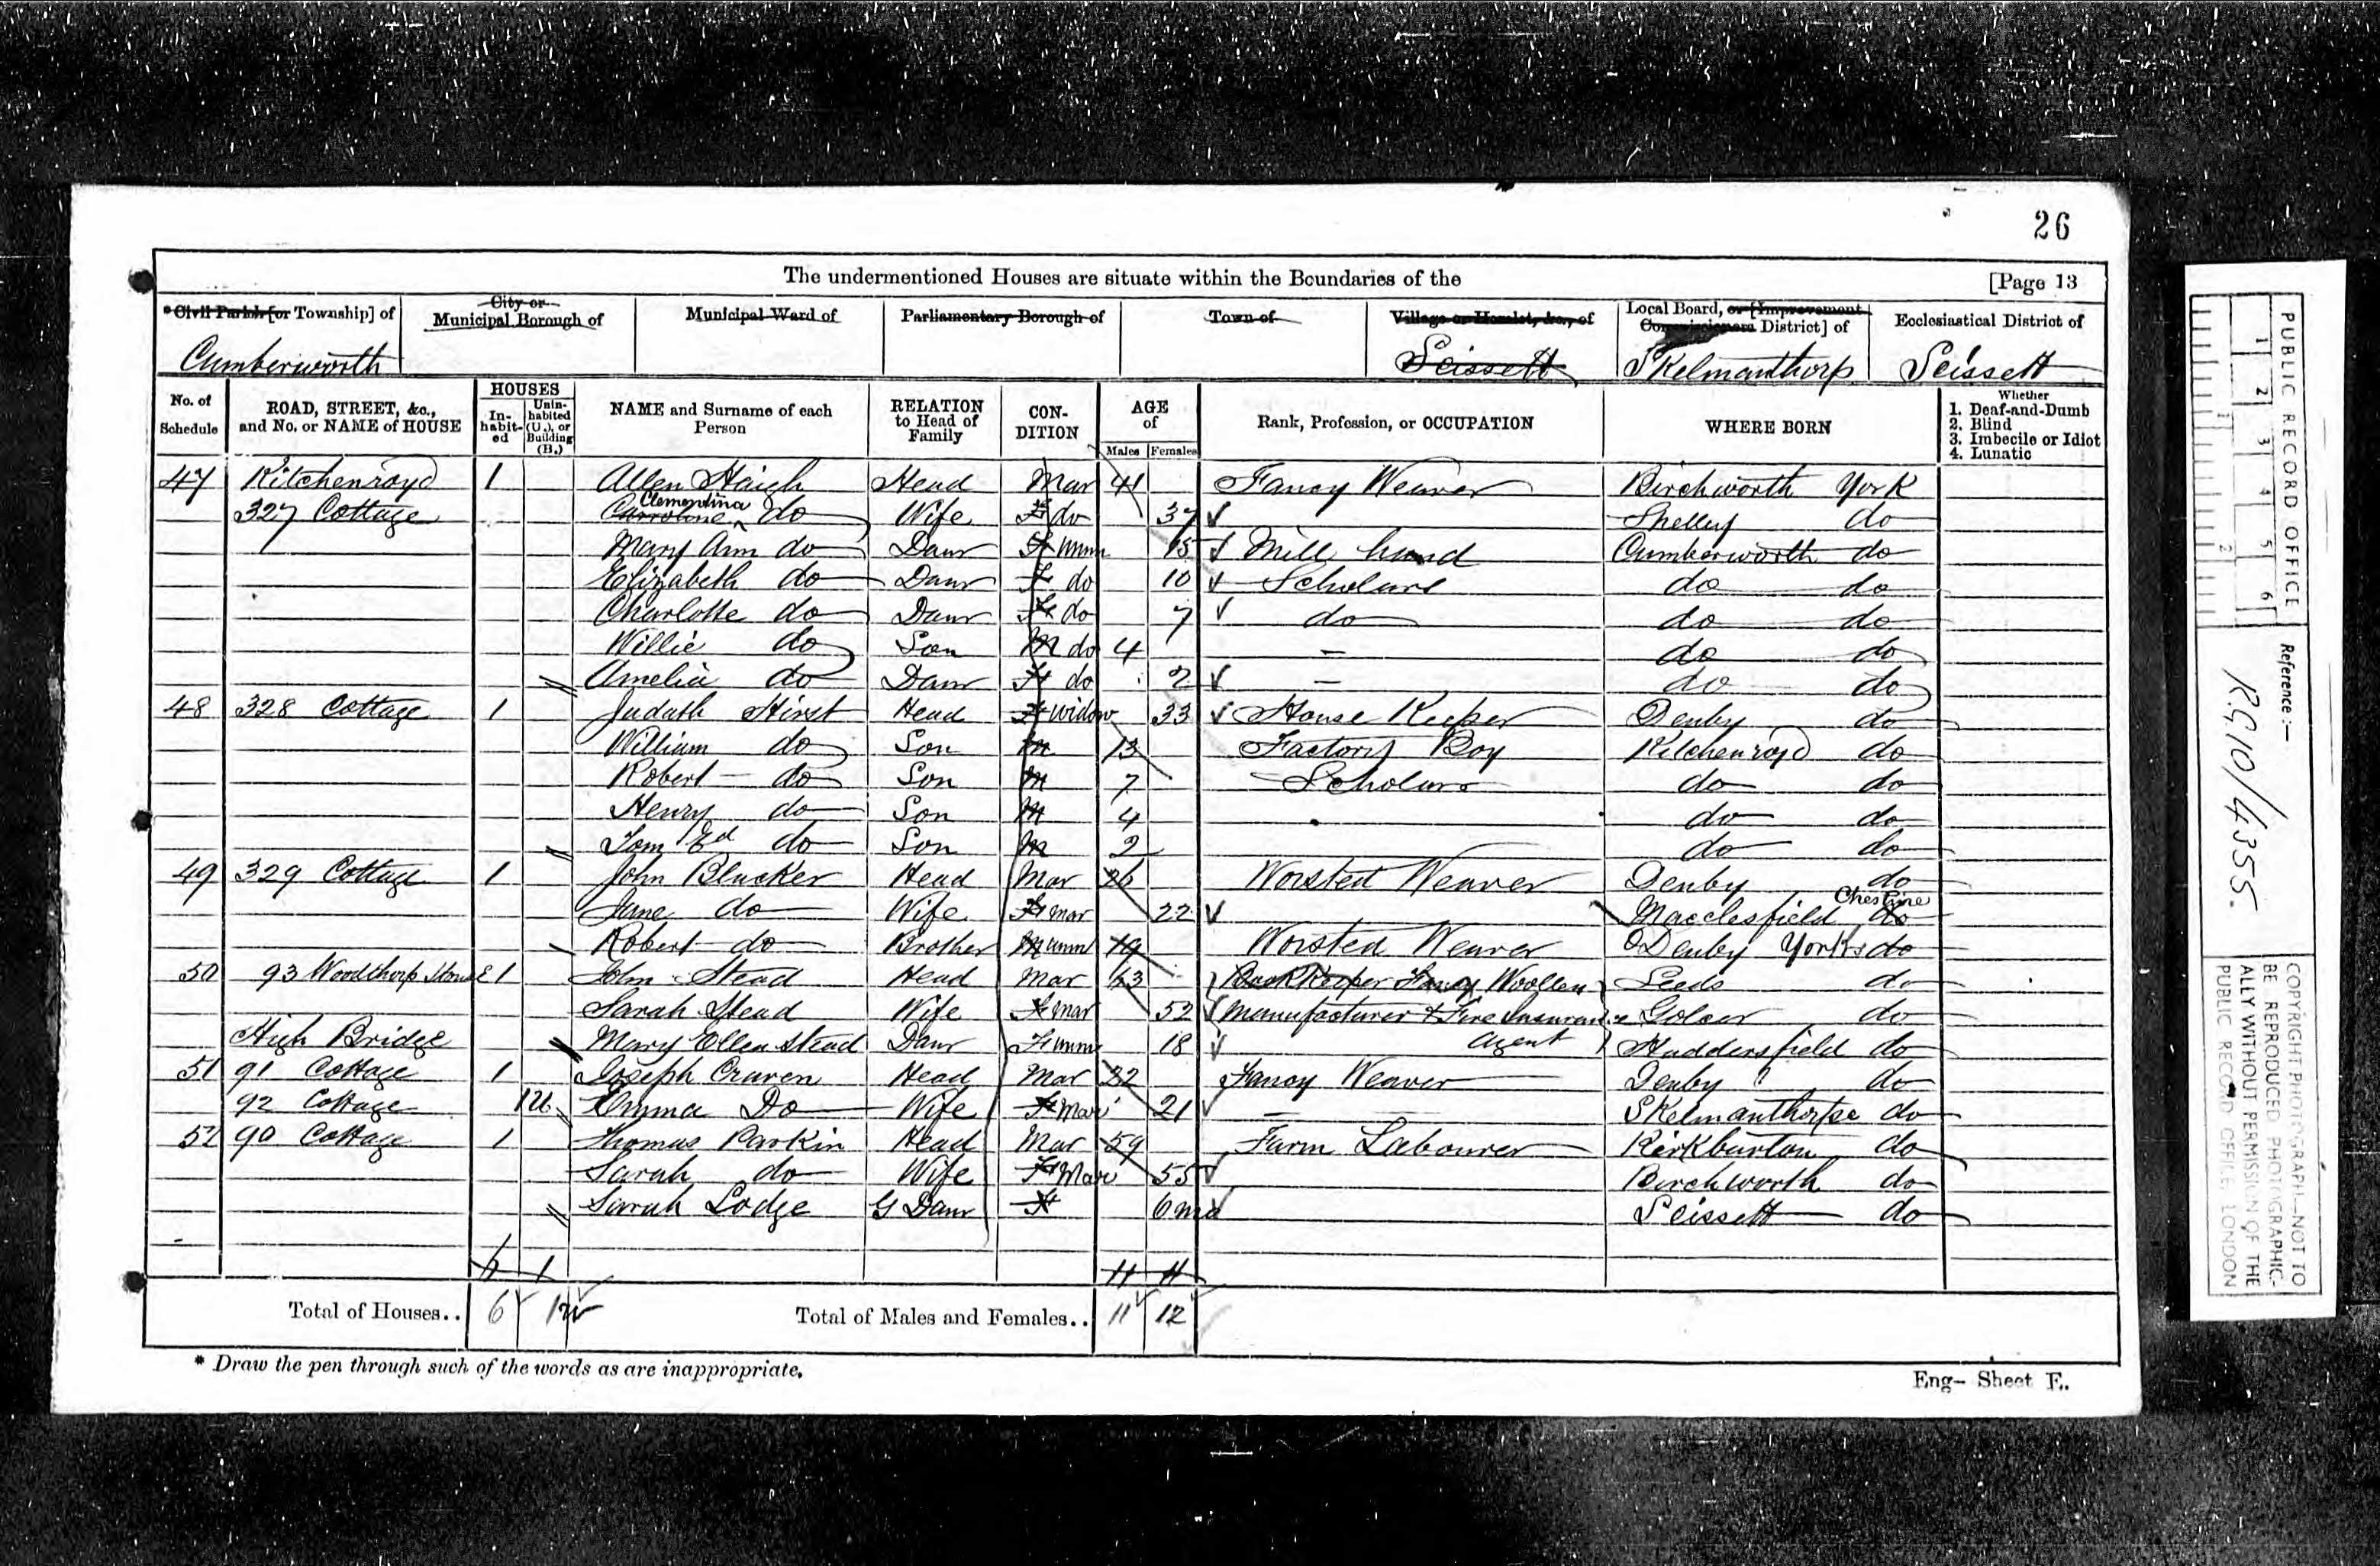 26
The undermentioned Houses are situate within the Boundaries of the [Page 13
*Civil Parish [or Township] of City or Municipal Borough of Municipal Ward of Parliamentary Borough of Town of Village or Hamlet, &c., of Local Board, or [Improvement Commissioners District] of Ecclesiastical District of
Cumberworth Scissett Skelmanthorp Scissett
No. of Schedule ROAD, STREET, &c., and No. or NAME of HOUSE HOUSES Inhabited Uninhabited (U.), or Building (B.) NAME and Surname of each Person RELATION to Head of Family CONDITION AGE of Males Females Rank, Profession, or OCCUPATION WHERE BORN Whether 1. Deaf-and-Dumb 2. Blind 3. Imbecile or Idiot 4. Lunatic
47 Kitchenroyd 1 Allen Haigh Head Mar 41 Fancy Weaver Birchworth York
327 Cottage Caroline Clementina do Wife F do 37 Shelley do
Mary Ann do Daur F unm 15 Mill hand Cumberworth do
Elizabeth do Daur F do 10 Scholars do do
Charlotte do Daur F do 7 do do do
Willie do Son M do 4 – do do
Amelia do Daur F do 2 – do do
48 328 Cottage 1 Judath Hirst Head F widow 33 House Keeper Denby do
William do Son M 13 Factory Boy Kitchenroyd do
Robert do Son M 7 Scholars do do
Henry do Son M 4 do do
Tom Ed do Son M 2 do do
49 329 Cottage 1 John Blacker Head Mar 26 Worsted Weaver Denby do
Jane do Wife F mar 22 Macclesfield Cheshire do
Robert do Brother M unm 19 Worsted Weaver Denby Yorks do
50 93 Woodthorp House 1 John Stead Head Mar 43 Book Keeper Fancy Woollen Leeds do
Sarah Stead Wife F mar 52 Manufacturer & Fire Insurance Golcar do
High Bridge Mary Ellen Stead Daur F unm 18 Agent Huddersfield do
51 91 Cottage 1 Joseph Craven Head Mar 22 Fancy Weaver Denby do
92 Cottage 1U Emma Do Wife F Mar 21 – Skelmanthorpe do
52 90 Cottage 1 Thomas Parkin Head Mar 59 Farm Labourer Kirkburton do
Sarah do Wife F Mar 55 Birchworth do
Sarah Lodge G Daur F 6 mo Scissett do
6 1 11 11
Total of Houses.. 6 1U Total of Males and Females.. 11 12
* Draw the pen through such of the words as are inappropriate.
Eng– Sheet E.
PUBLIC RECORD OFFICE
1 2 3 4 5 6
1 2
Reference:—
R.G. 10/4355.
COPYRIGHT PHOTOGRAPH—NOT TO
BE REPRODUCED PHOTOGRAPHIC-
ALLY WITHOUT PERMISSION OF THE
PUBLIC RECORD OFFICE, LONDON